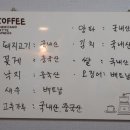 COFFEE
돼지고기 : 국내산
꽃게 : 중국산
낙지 : 중국산
새우 : 베트남
고추가루 : 국내산 중국산
김치 : 국내산
쌀 : 국내산
오징어 : 베트남